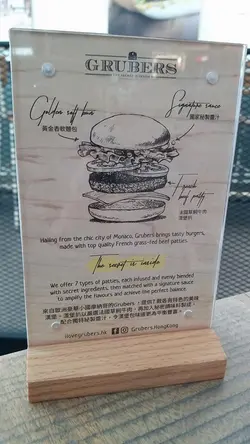 GRUBERS
Golden soft bun
黃金香軟麵包
Signature sauce
獨家秘製醬汁
French
beef patty
法國草飼牛肉
漢堡扒
Hailing from the chic city of Monaco, Grubers brings tasty burgers,
made with top quality French grass-fed beef patties.
The secret is inside
We offer 7 types of patties, each infused and evenly blended
with secret ingredients, then matched with a signature sauce
to amplify the flavours and achieve the perfect balance
來自歐洲豪華小國摩納哥的Grubers,提供7款各有特色的美味
漢堡。漢堡扒以嚴選法國草飼牛肉,再加入秘密調味料製成,
配合獨特秘製醬汁,令漢堡包味道更為平衡豐富。
ilovegrubers.hk
Grubers.HongKong